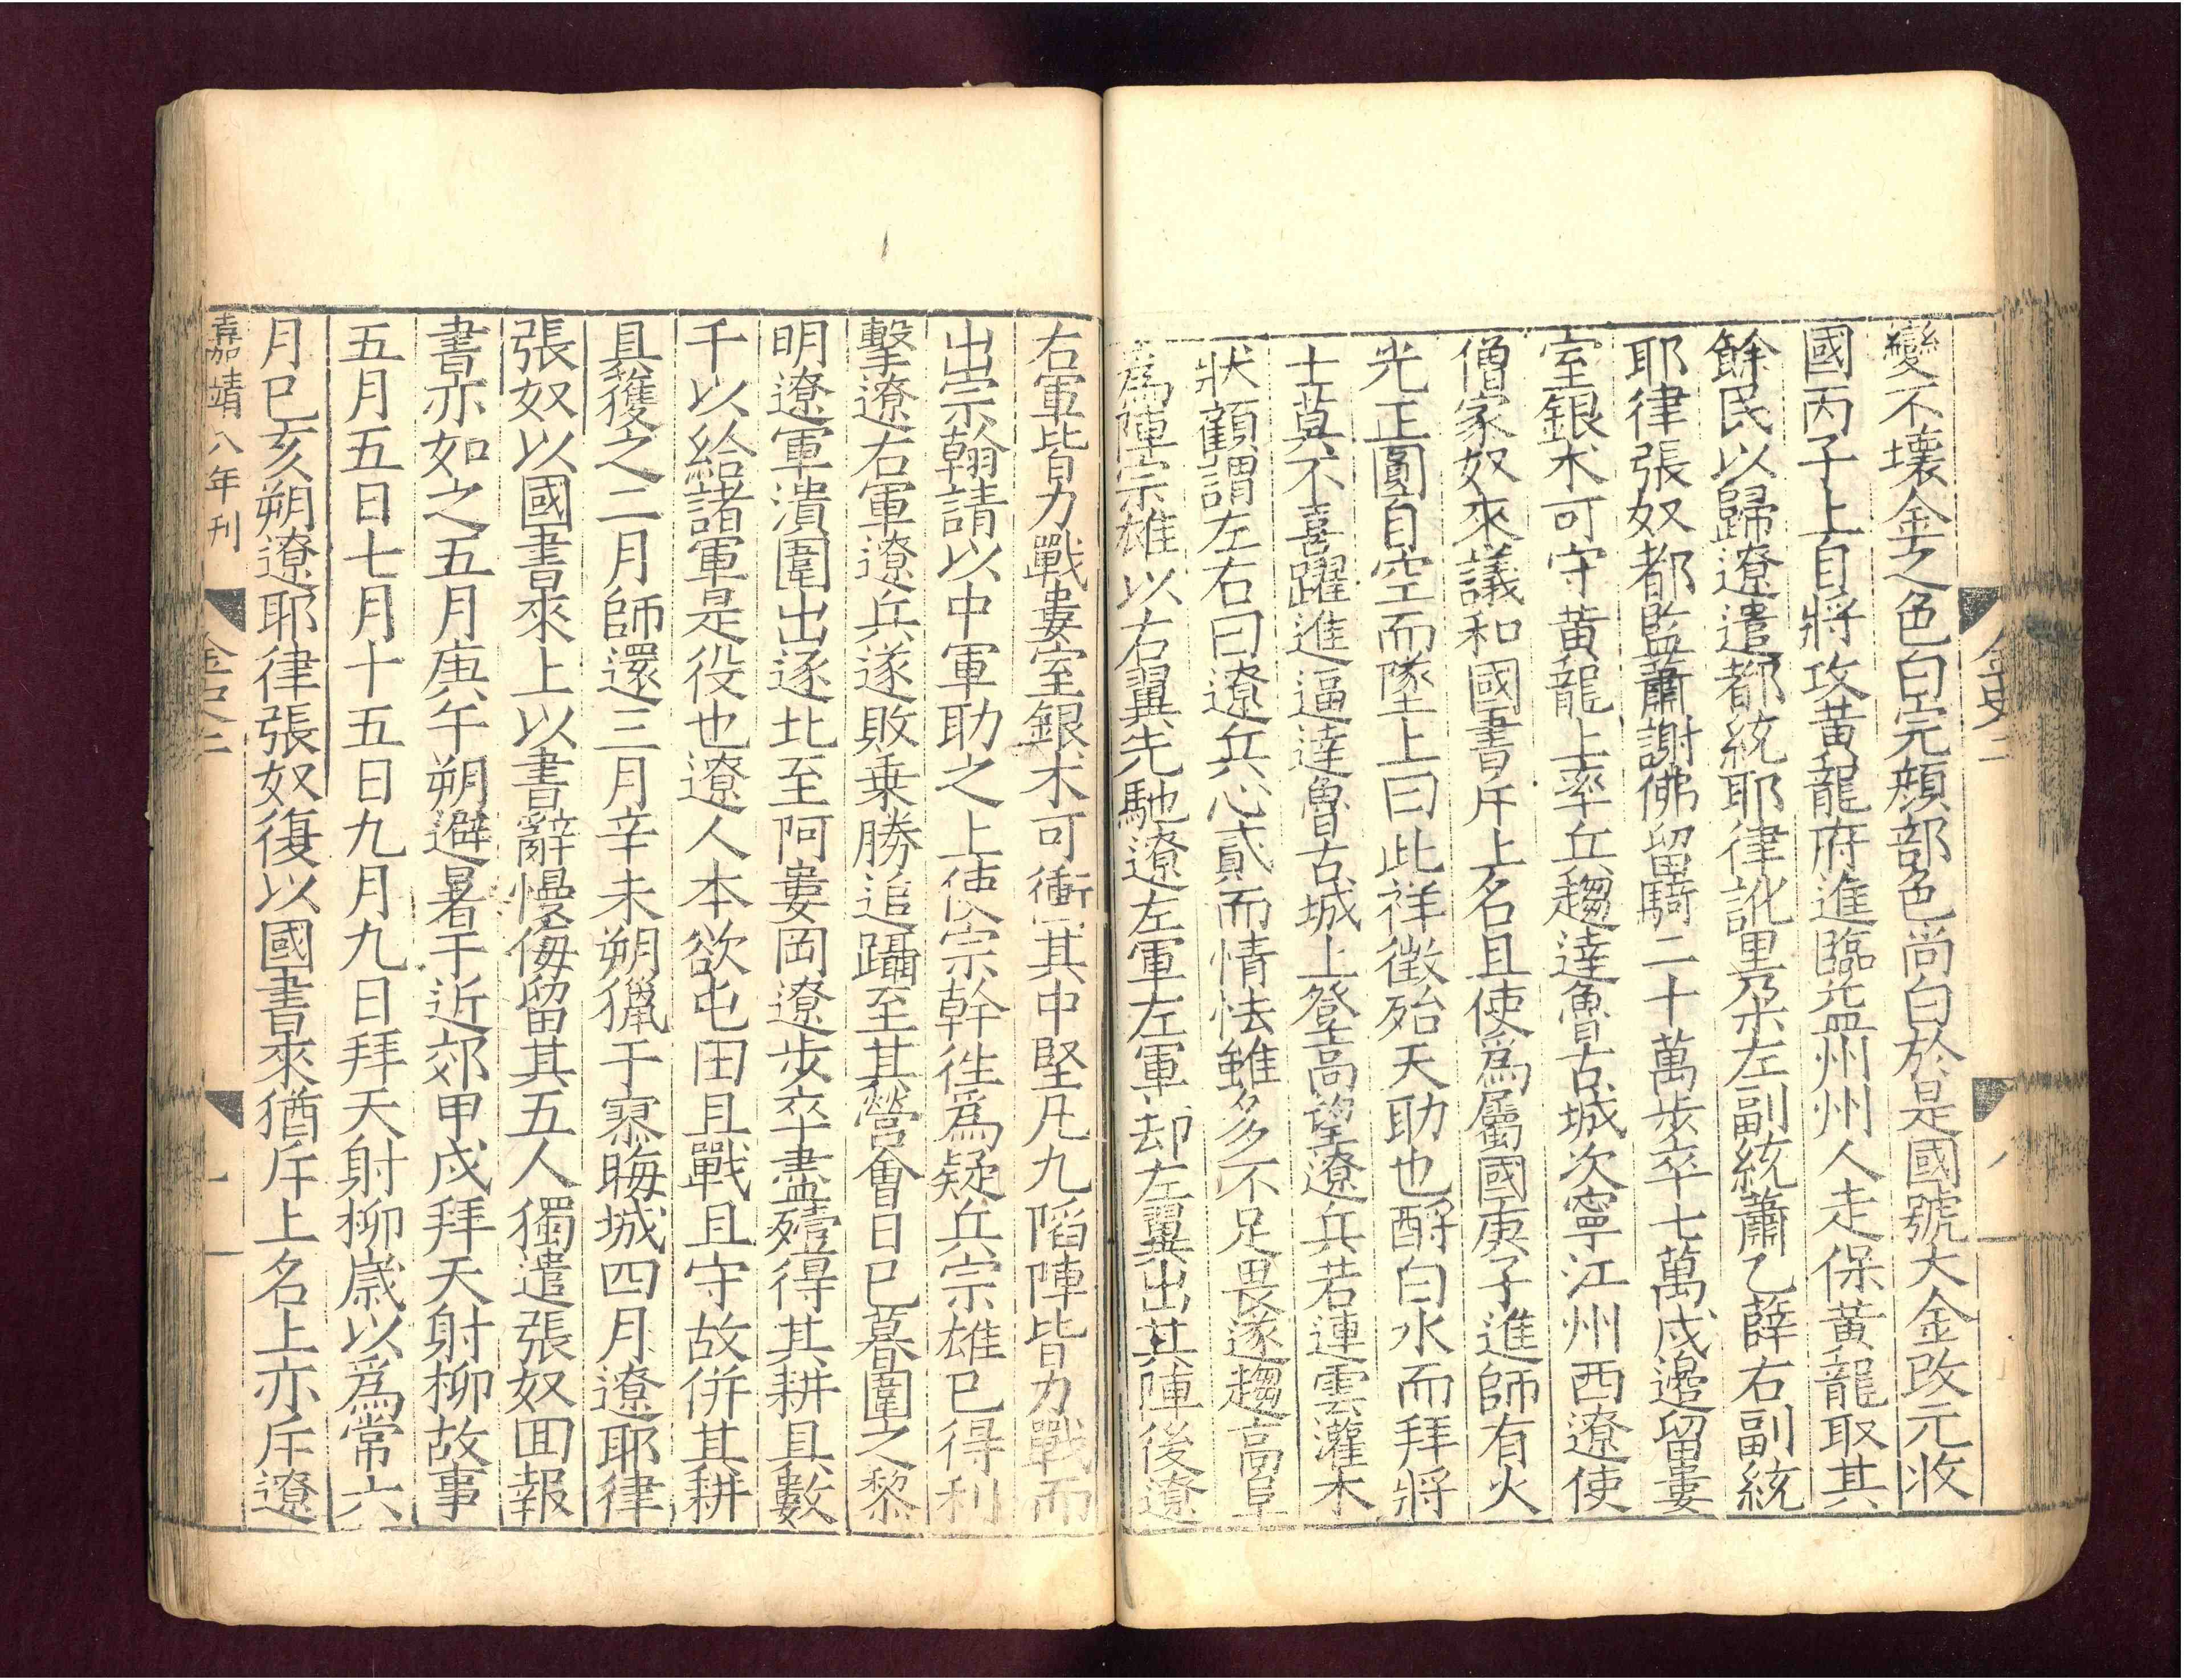 變不壞金之色白完顔部色尚白於是國號大金改元收
國丙子上自將攻黃龍府進臨益州州人走保黃龍取其
餘民以歸遼遣都統耶律訛里朶左副統蕭乙薛右副統
耶律張奴都監蕭謝佛留騎二十萬步卒七萬戍邊留婁
室銀朮可守黃龍上率兵趨達魯古城次寧江州西遼使
僧家奴來議和國書斥上名且使爲屬國庚子進師有火
光正圓自空而墜上曰此祥徵殆天助也酹白水而拜將
士莫不喜躍進逼達魯古城上登高望遼兵若連雲灌木
狀顧謂左右曰遼兵心貳而情怯雖多不足畏遂趨高阜
爲陣宗雄以右翼先馳遼左軍左軍却左翼出其陣後遼
右軍皆力戰婁室銀朮可衝其中堅凡九陷陣皆力戰而
出宗翰請以中軍助之上使宗幹徃爲疑兵宗雄已得利
擊遼右軍遼兵遂敗乗勝追躡至其營會日已暮圍之黎
明遼軍潰圍出逐北至阿婁岡遼步卒盡殪得其耕具數
千以給諸軍是役也遼人本欲屯田且戰且守故併其耕
具獲之二月師還三月辛未朔獵于寥晦城四月遼耶律
張奴以國書來上以書辭慢侮留其五人獨遣張奴囬報
書亦如之五月庚午朔避暑于近郊甲戌拜天射柳故事
五月五日七月十五日九月九日拜天射柳歲以爲常六
月己亥朔遼耶律張奴復以國書來猶斥上名上亦斥遼
嘉靖八年刊
金史二